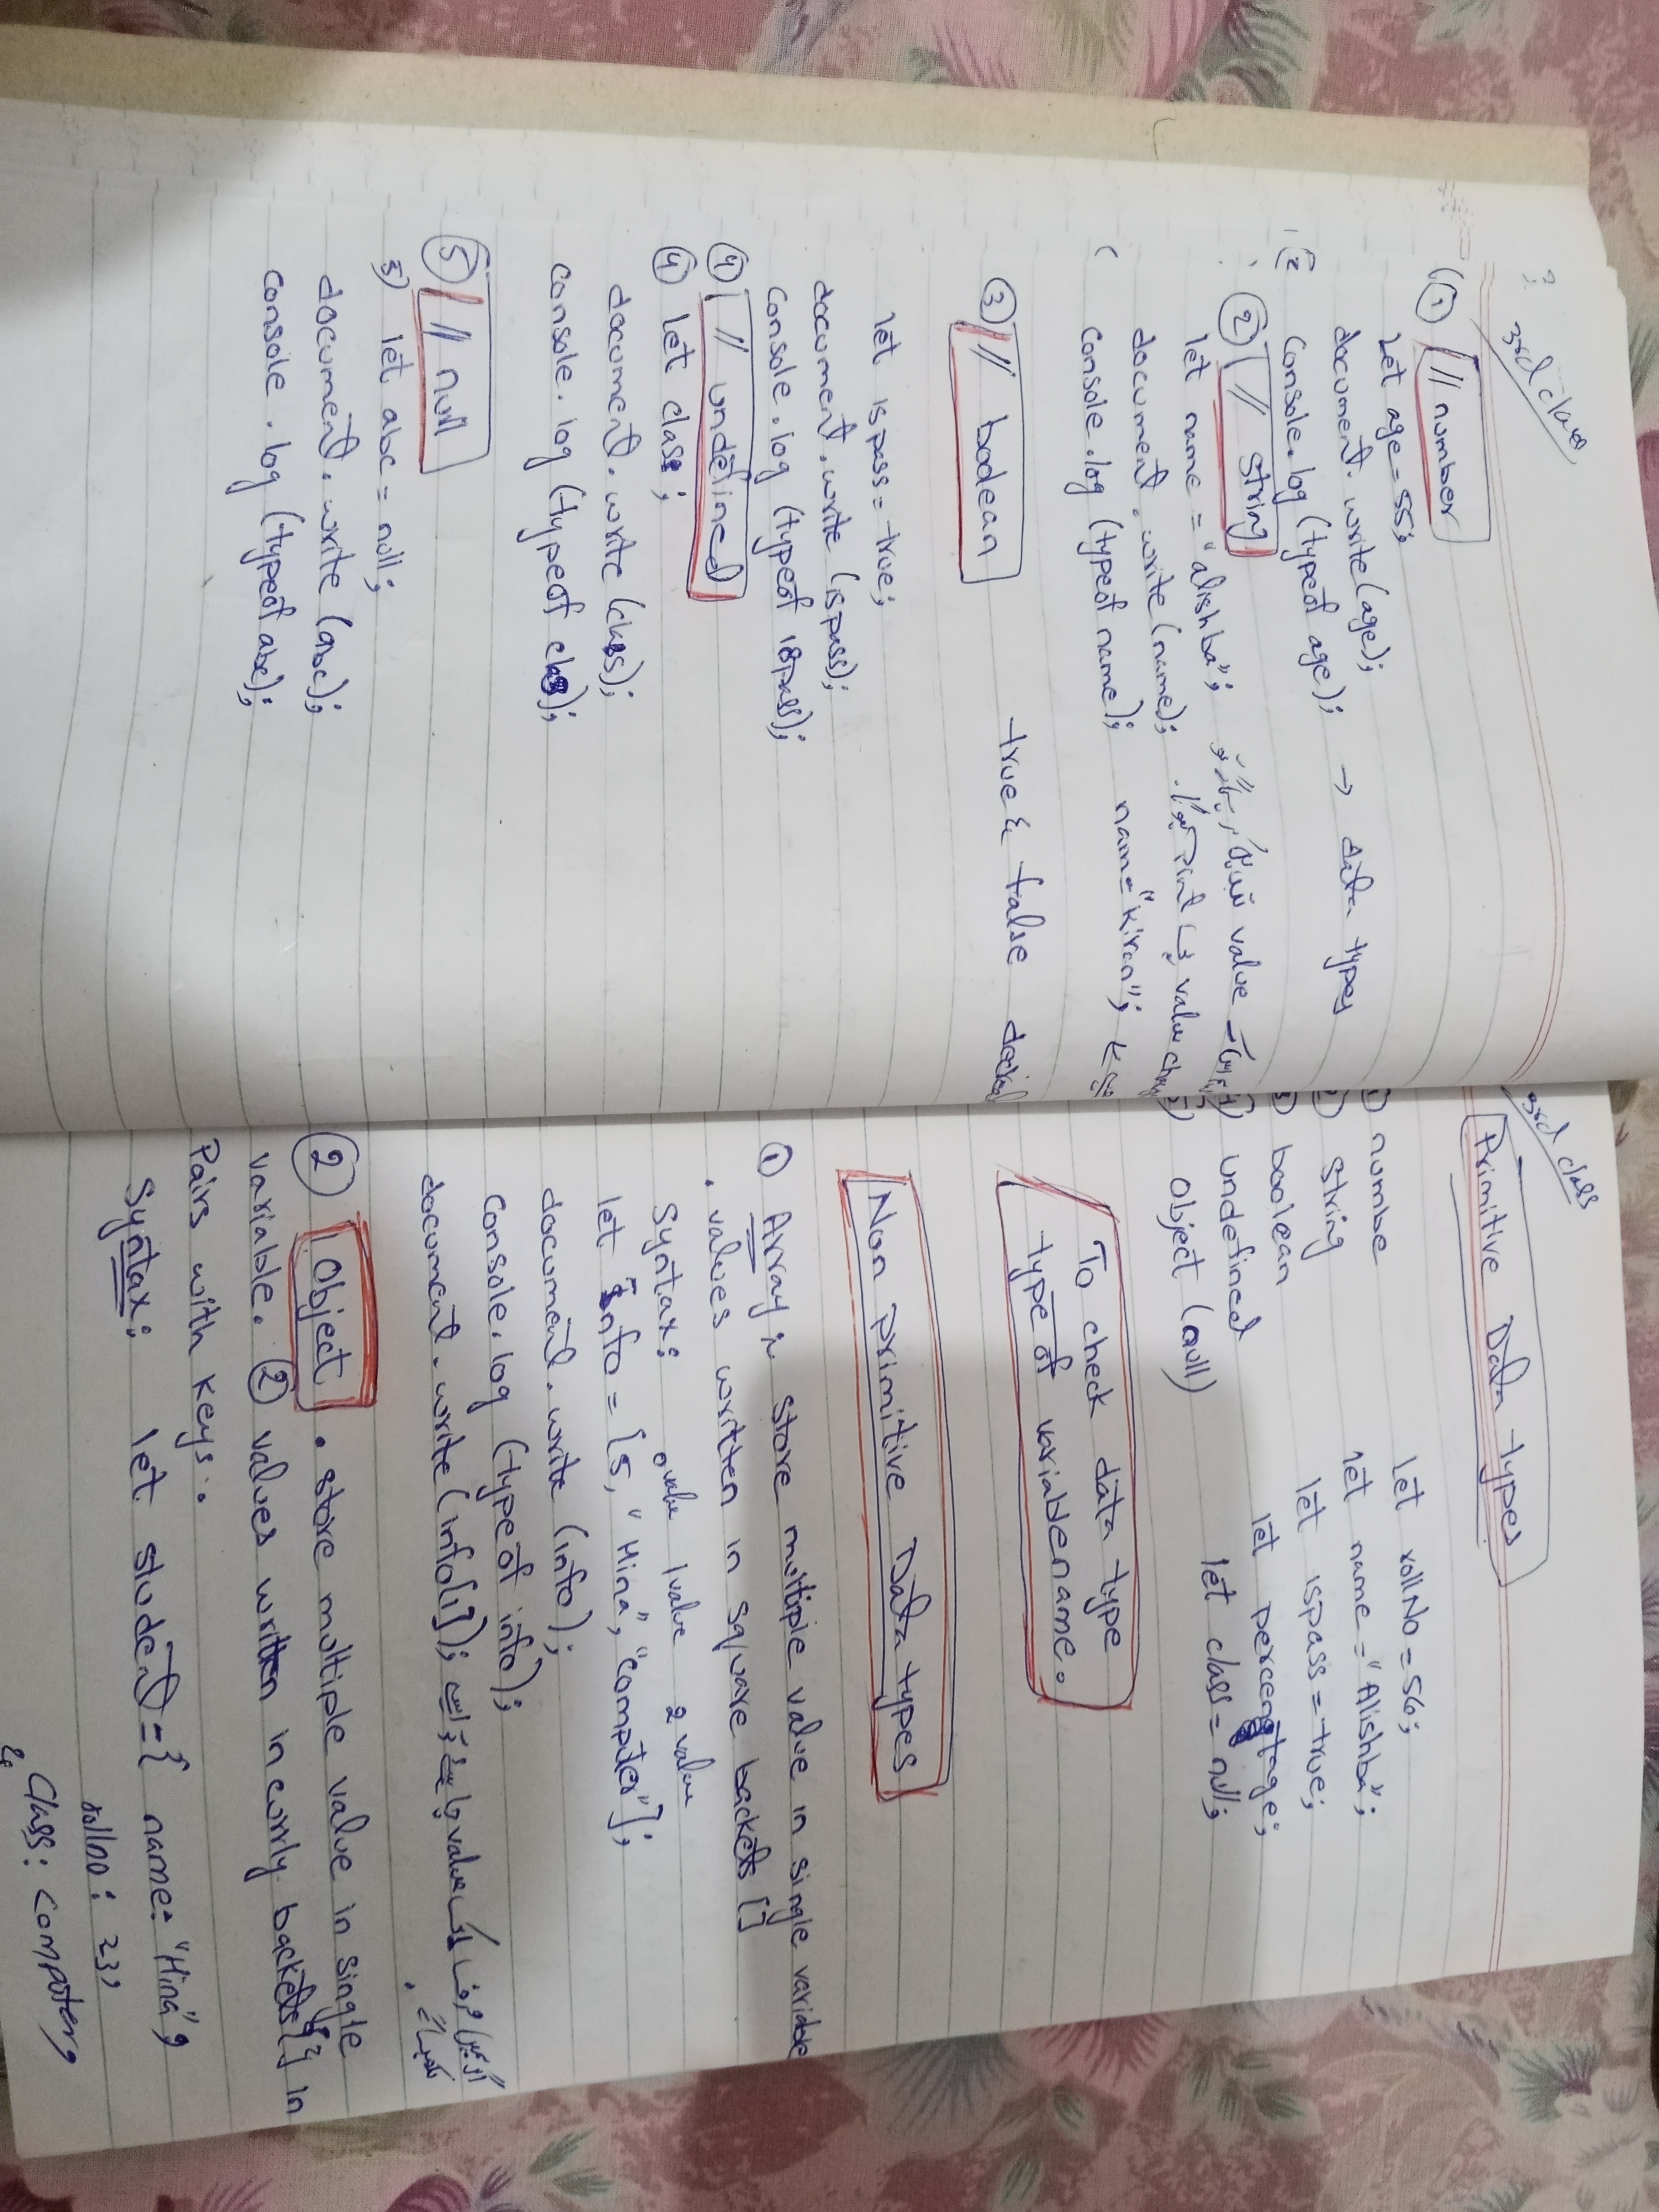 3rd class
① // number
let age = 55;
document.write(age);
console.log(typeof age); → data types
② // string
let name = "alishba";
document.write(name);
console.log(typeof name); name="kiran";
③ // boolean true & false
let ispass = true;
document.write(ispass);
console.log(typeof ispass);
④ // undefined
④ let class;
document.write(class);
console.log(typeof class);
⑤ // null
5) let abc = null;
document.write(abc);
console.log(typeof abc);
3rd class
Primitive Data types
numbe let rollNo = 56;
string let name = "Alishba";
boolean let ispass = true;
undefined let percengtage;
object (null) let class = null;
To check data type
type of variablename.
Non primitive Data types
① Array:~ store multiple value in single variable
. values written in square backets []
Syntax: 0 value 1 value 2 value
let info = [5, "Hina", "computer"];
document.write(info);
console.log(typeof info);
document.write(info[1]);
② Object . store multiple value in single
variable. ② values written in curly backets{} in
Pairs with keys:.
Syntax: let student = { name: "Hina",
rollno: 23,
class: computer,